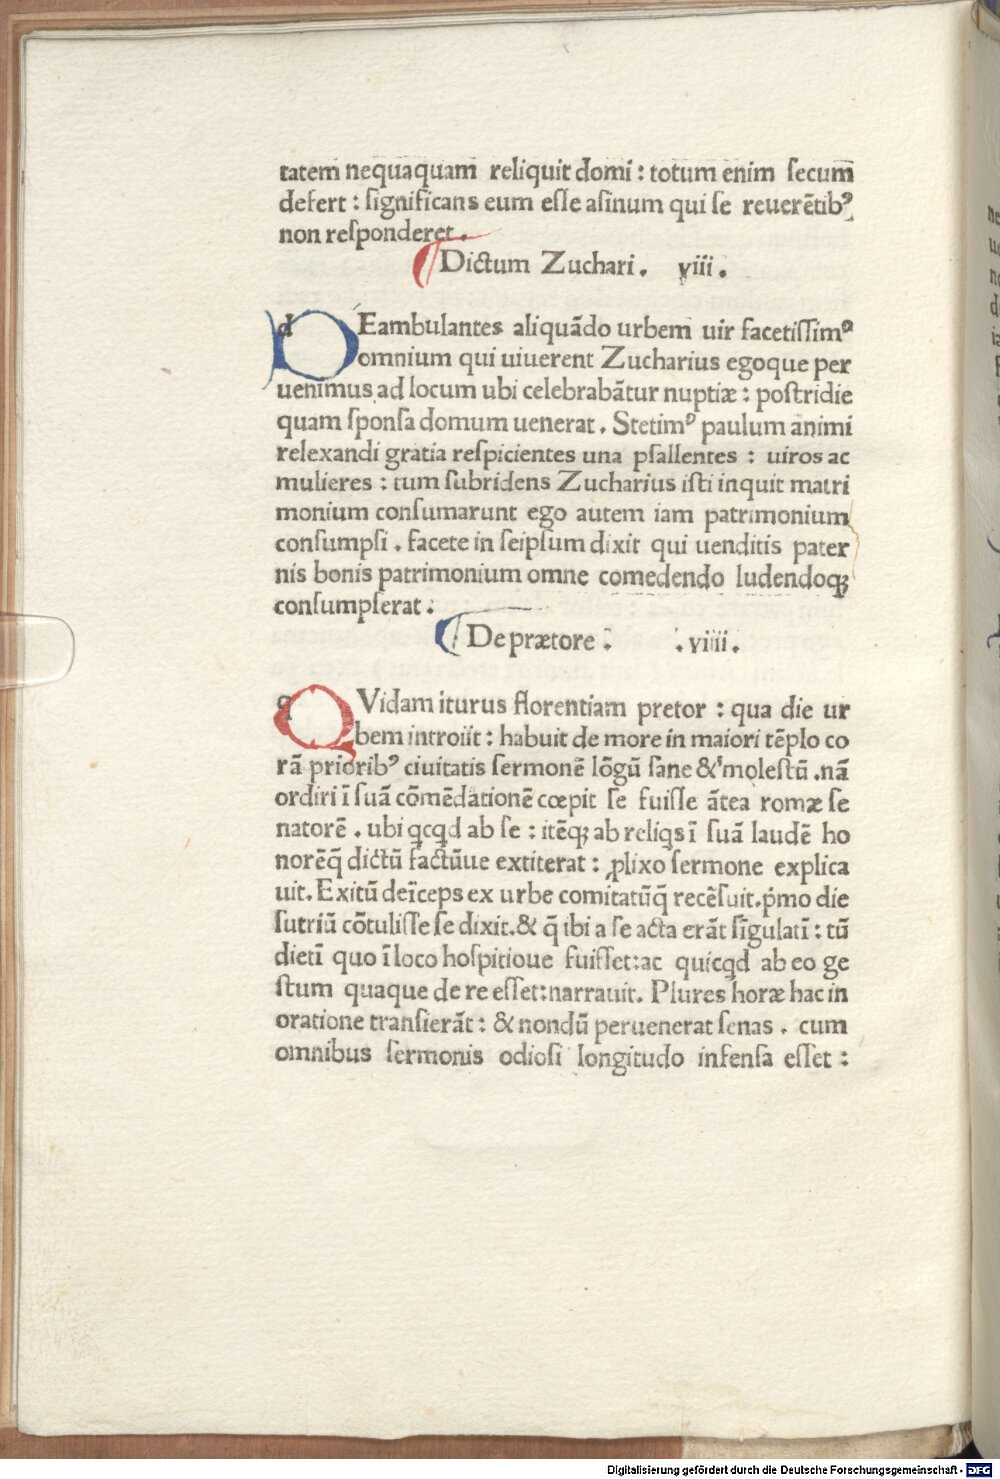 tatem nequaquam reliquit domi : totum enim ſecum
defert : ſignificans eum eſſe aſinum qui ſe reuerētibꝰ
non reſponderet .
Dictum Zuchari . viii .
DEambulantes aliquādo urbem uir facetiſſimꝰ
omnium qui uiuerent Zucharius egoque per
uenimus ad locum ubi celebrabātur nuptiæ : poſtridie
quam ſponſa domum uenerat . Stetimꝰ paulum animi
relexandi gratia reſpicientes una pſallentes : uiros ac
mulieres : tum ſubridens Zucharius iſti inquit matri
monium conſumarunt ego autem iam patrimonium
conſumpſi . facete in ſeipſum dixit qui uenditis pater
nis bonis patrimonium omne comedendo ludendoqꝫ
conſumpſerat .
De prætore . . viiii .
QVidam iturus florentiam pretor : qua die ur
bem introiit : habuit de more in maiori tēplo co
rā prioribꝰ ciuitatis ſermonē lōgū ſane & moleſtū . nā
ordiri ī ſuā cōmēdationē cœpit ſe fuiſſe ātea romæ ſe
natorē . ubi qcqd ab ſe : itēqꝫ ab reliqs ī ſuā laudē ho
norēq̄ dictū factūue extiterat : ꝓlixo ſermone explica
uit. Exitū deīceps ex urbe comitatūq̄ recēſuit. pͥmo die
ſutriū cōtuliſſe ſe dixit. & q̄ ibi a ſe acta erāt ſīgulatī : tū
dietī quo ī loco hoſpitioue fuiſſet : ac quicqd ab eo ge
ſtum quaque de re eſſet : narrauit. Plures horæ hac in
oratione tranſierāt : & nondū peruenerat ſenas . cum
omnibus ſermonis odioſi longitudo infenſa eſſet :
Digitalisierung gefördert durch die Deutsche Forschungsgemeinschaft - DFG